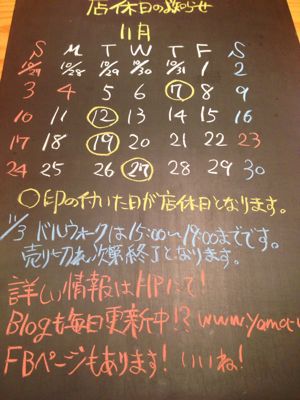 店休日のお知らせ
11月
S M T W T F S
10/27 10/28 10/29 10/30 10/31 1 2
3 4 5 6 7 8 9
10 11 12 13 14 15 16
17 18 19 20 21 22 23
24 25 26 27 28 29 30
○印の付いた日が店休日となります。
11/3 ドルウォークは15:00〜19:00までです。
売り切れ次第終了となります。
詳しい情報はHPにて!
Blogも毎日更新中!? www.yama
FBページもあります! いいね!